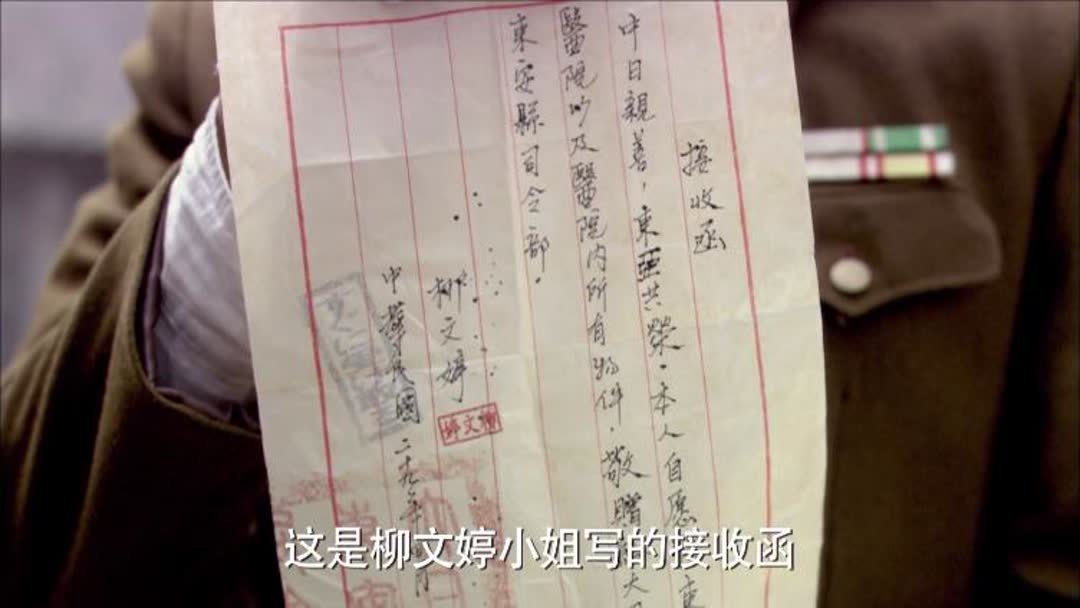 接收函
中日親善，東亞共榮。本人自愿
醫院以及醫院内所有物件，敬贈
東安縣司令部。
柳文婷
柳文婷
中華民國二十九年
这是柳文婷小姐写的接收函